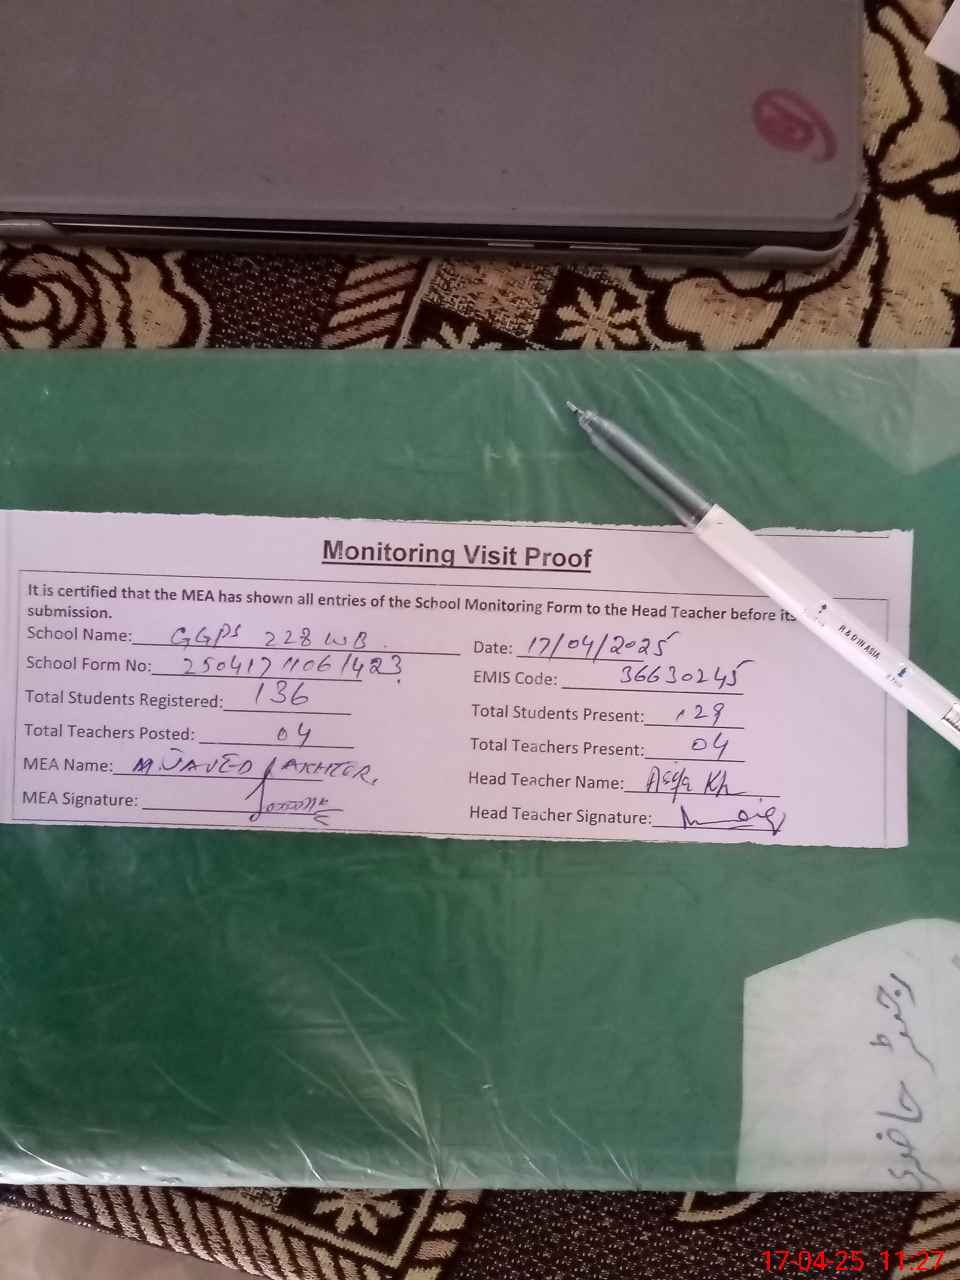 Monitoring Visit Proof
It is certified that the MEA has shown all entries of the School Monitoring Form to the Head Teacher before its
submission.
School Name: GGPS 228 WB
Date: 17/04/2025
School Form No: 25041711061423
EMIS Code: 36630245
Total Students Registered: 136
Total Students Present: 129
Total Teachers Posted: 04
Total Teachers Present: 04
MEA Name: M JAVED AKHTER
Head Teacher Name: Asya Kh
MEA Signature:
Head Teacher Signature:
R & D IN ASIA
رجسٹر حاضری
17-04-25 11:27